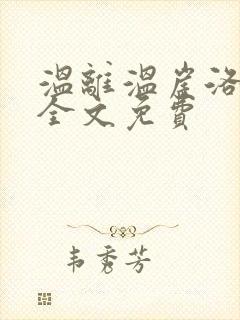 温離温崖洛
全文免費
韦秀芳